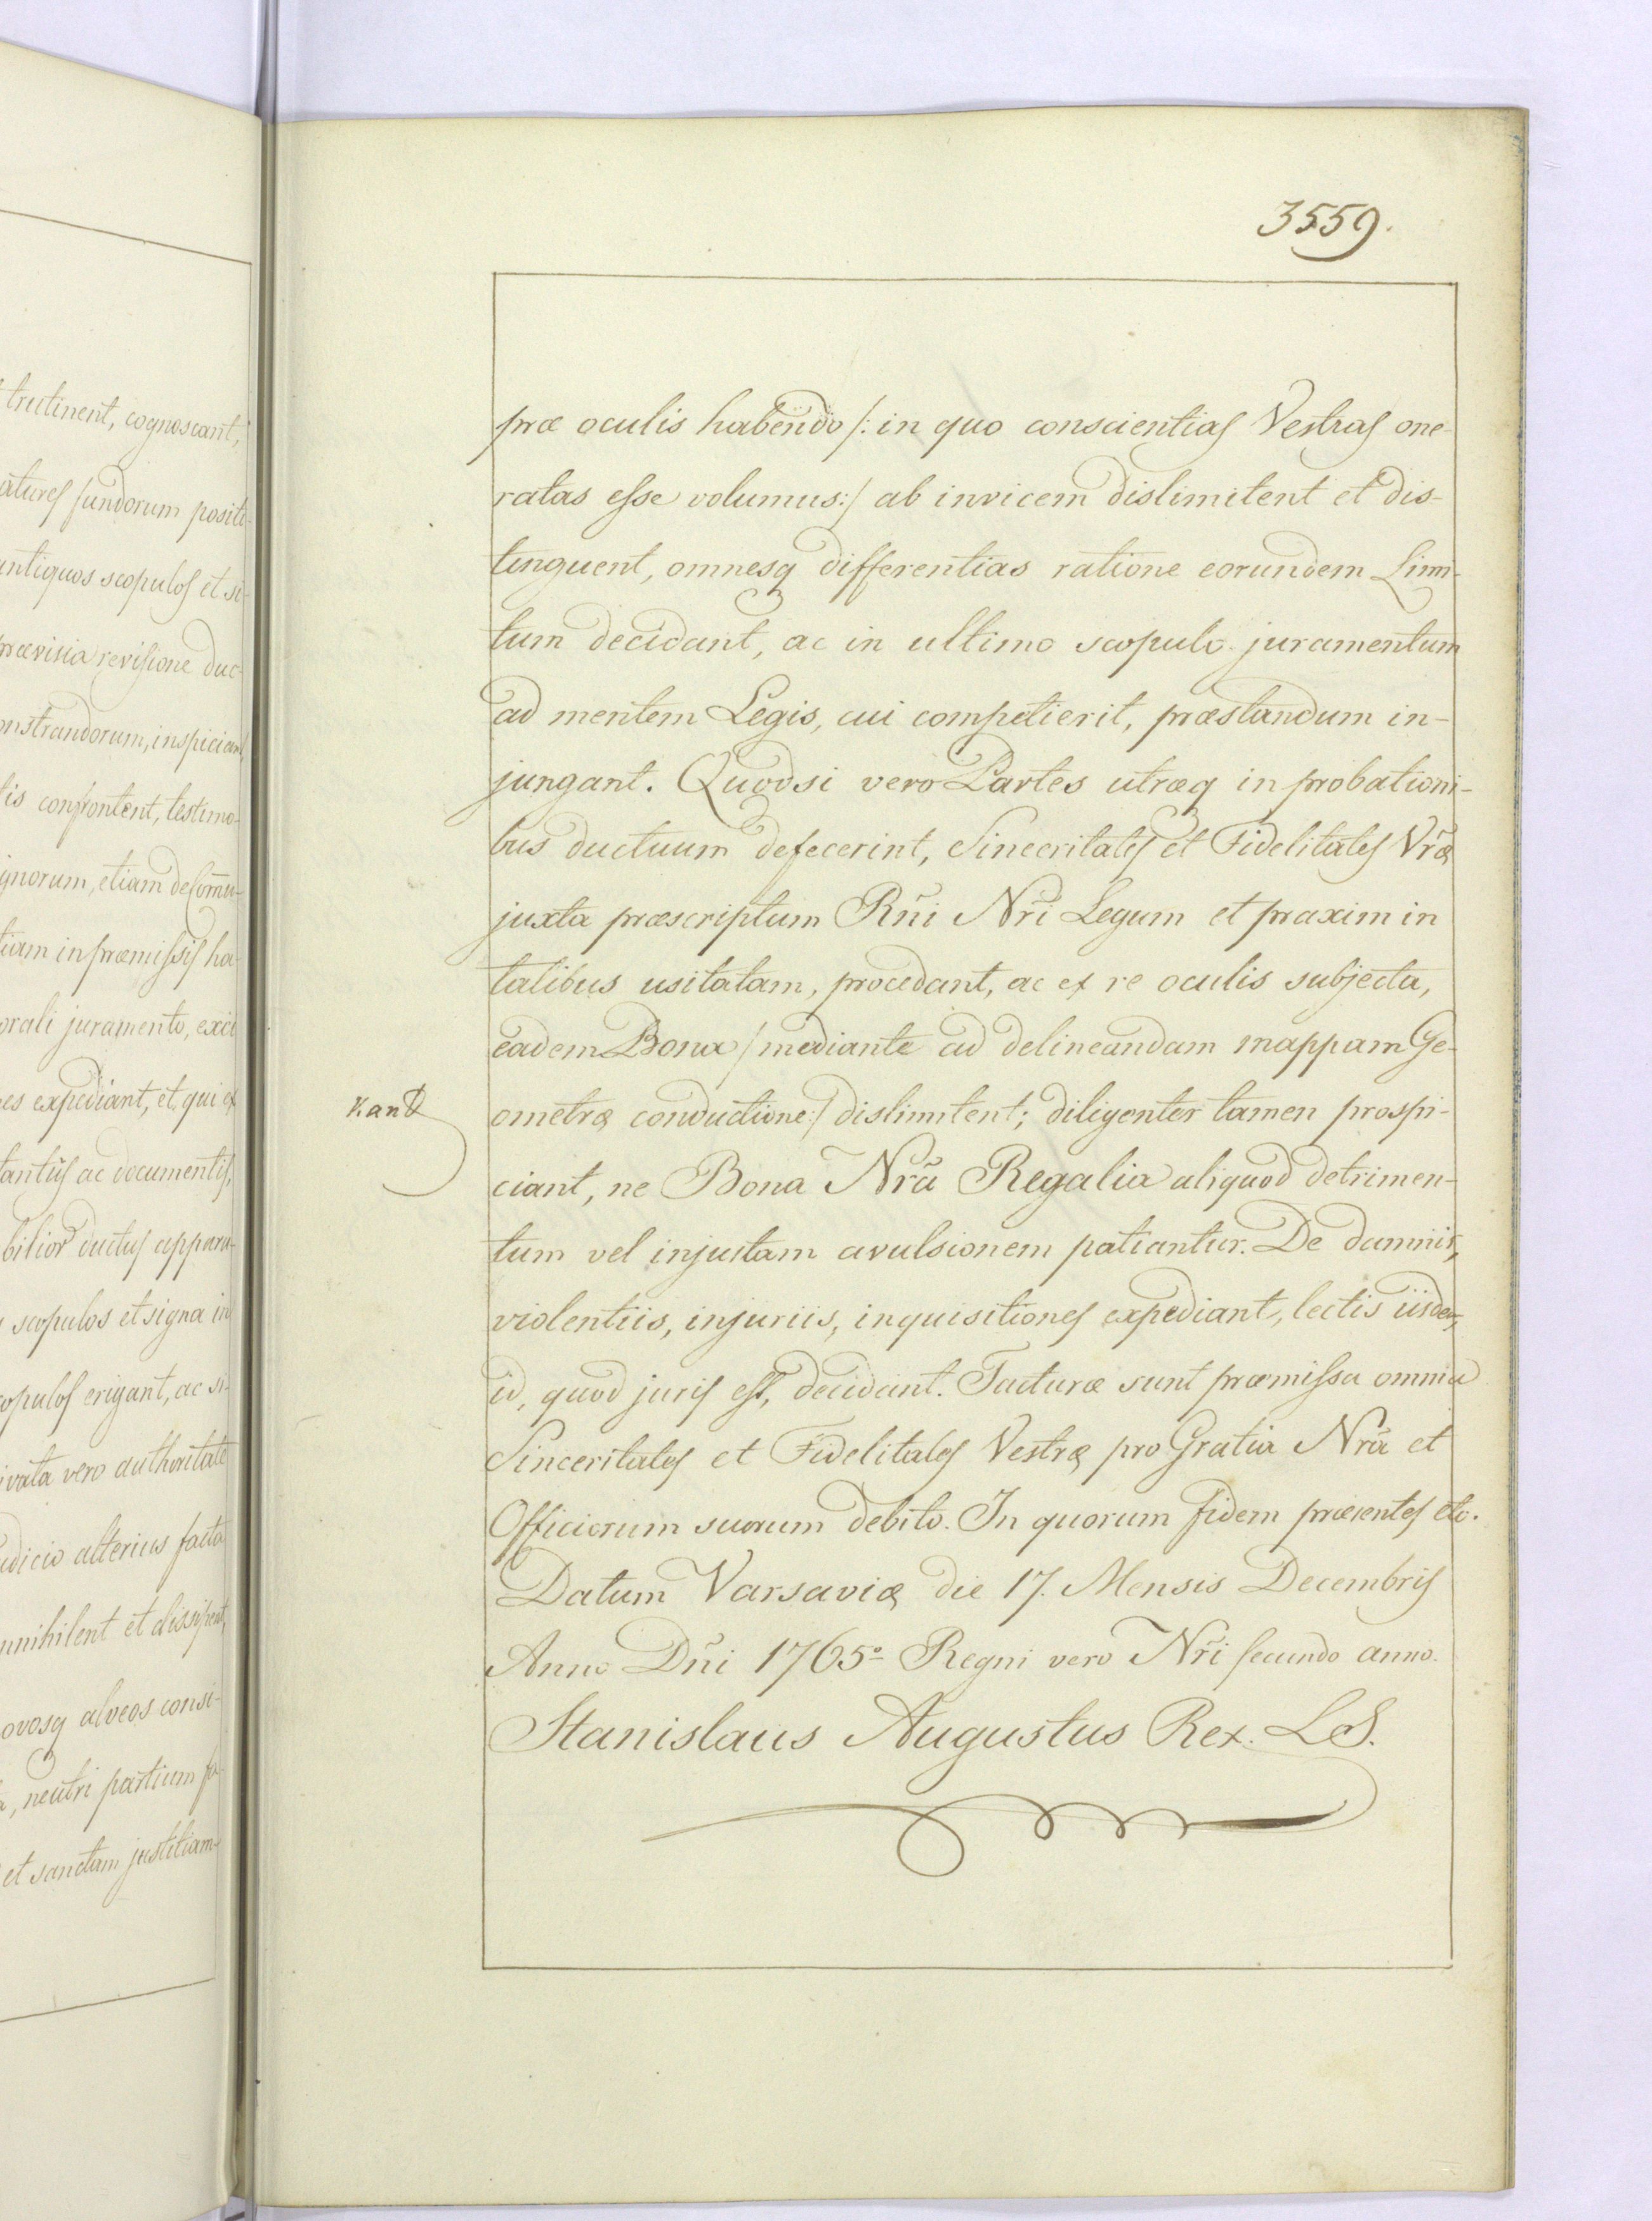 trutinent, cognoscant,
atures fundorum posite-
antiquos scopulos et si-
prævisia revisione duc-
onstrandorum, inspiciant
lis confrontent, testimo-
gnorum, etiam de Com̃u-
tiam in præmissis ha-
orali juramento, exci
es expediant, et qui ex
tantiis ac documentis,
bilior ductus appara-
scopulos et signa in
copulos erigant, ac si-
ivata vero authoritate
udicio alterius facta
nnihilent et dissipent,
ovosq alveos consi-
a, neutri partium fa-
et sanctam justitiam
3559.
præ oculis habendo /: in quo conscientias Vestras one-
ratas esse volumus :/ ab invicem dislimitent et dis-
tinguent, omnesq differentias ratione eorundem Limi-
tum decidant, ac in ultimo scopulo juramentum
ad mentem Legis, cui competierit, præstandum in-
jungant. Quodsi vero Partes utræq in probationi-
bus ductuum defecerint, Sinceritates et Fidelitates Vr̃æ
juxta præscriptum Rñi Nr̃i Legum et praxim in
talibus usitatam, procedant, ac ex re oculis subjecta,
eadem Bona / mediante ad delineandam mappam Ge-
ometræ conductione :/ dislimitent; diligenter tamen prospi-
ciant, ne Bona Nr̃a Regalia aliquod detrimen-
tum vel injustam avulsionem patiantur. De damnis,
violentiis, injuriis, inquisitiones expediant, lectis iisdem,
id, quod juris est, decidant. Facturæ sunt præmissa omnia
Sinceritates et Fidelitates Vestræ pro Gratia Nr̃a et
Officiorum suorum debito. In quorum fidem præsentes etc.
Datum Varsaviæ die 17. Mensis Decembris
Anno Dñi 1765º Regni vero Nr̃i secundo anno.
Stanislaus Augustus Rex. LS.